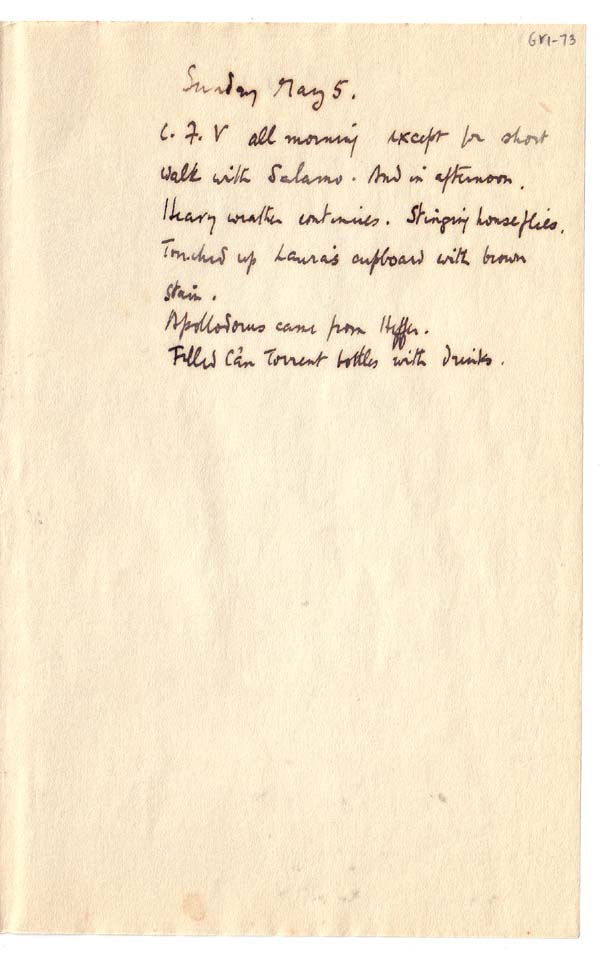 GVI-73
Sunday May 5.
C. F. V all morning except for short
walk with Salamo. And in afternoon.
Heavy weather continues. Stinging houseflies.
Touched up Laura's cupboard with brown
stain.
Apollodorus came from Heffer.
Filled Ca'n Torrent bottles with drinks.